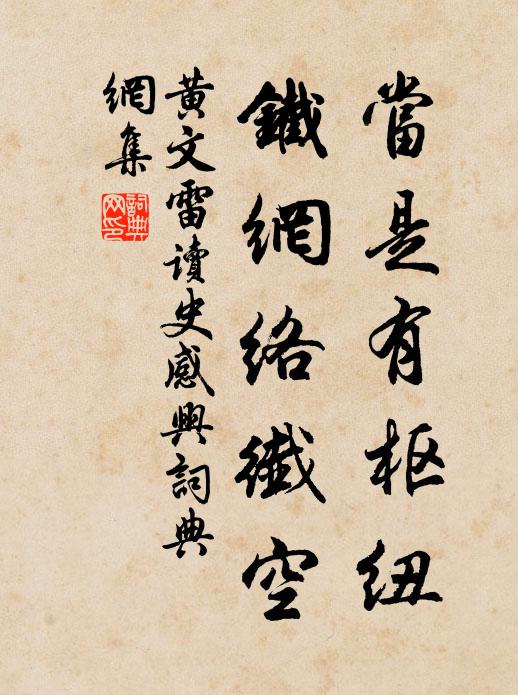 當是有枢紐
鐵網絡纖空
黄文雷讀史感興詞典
網集
詞典
网印